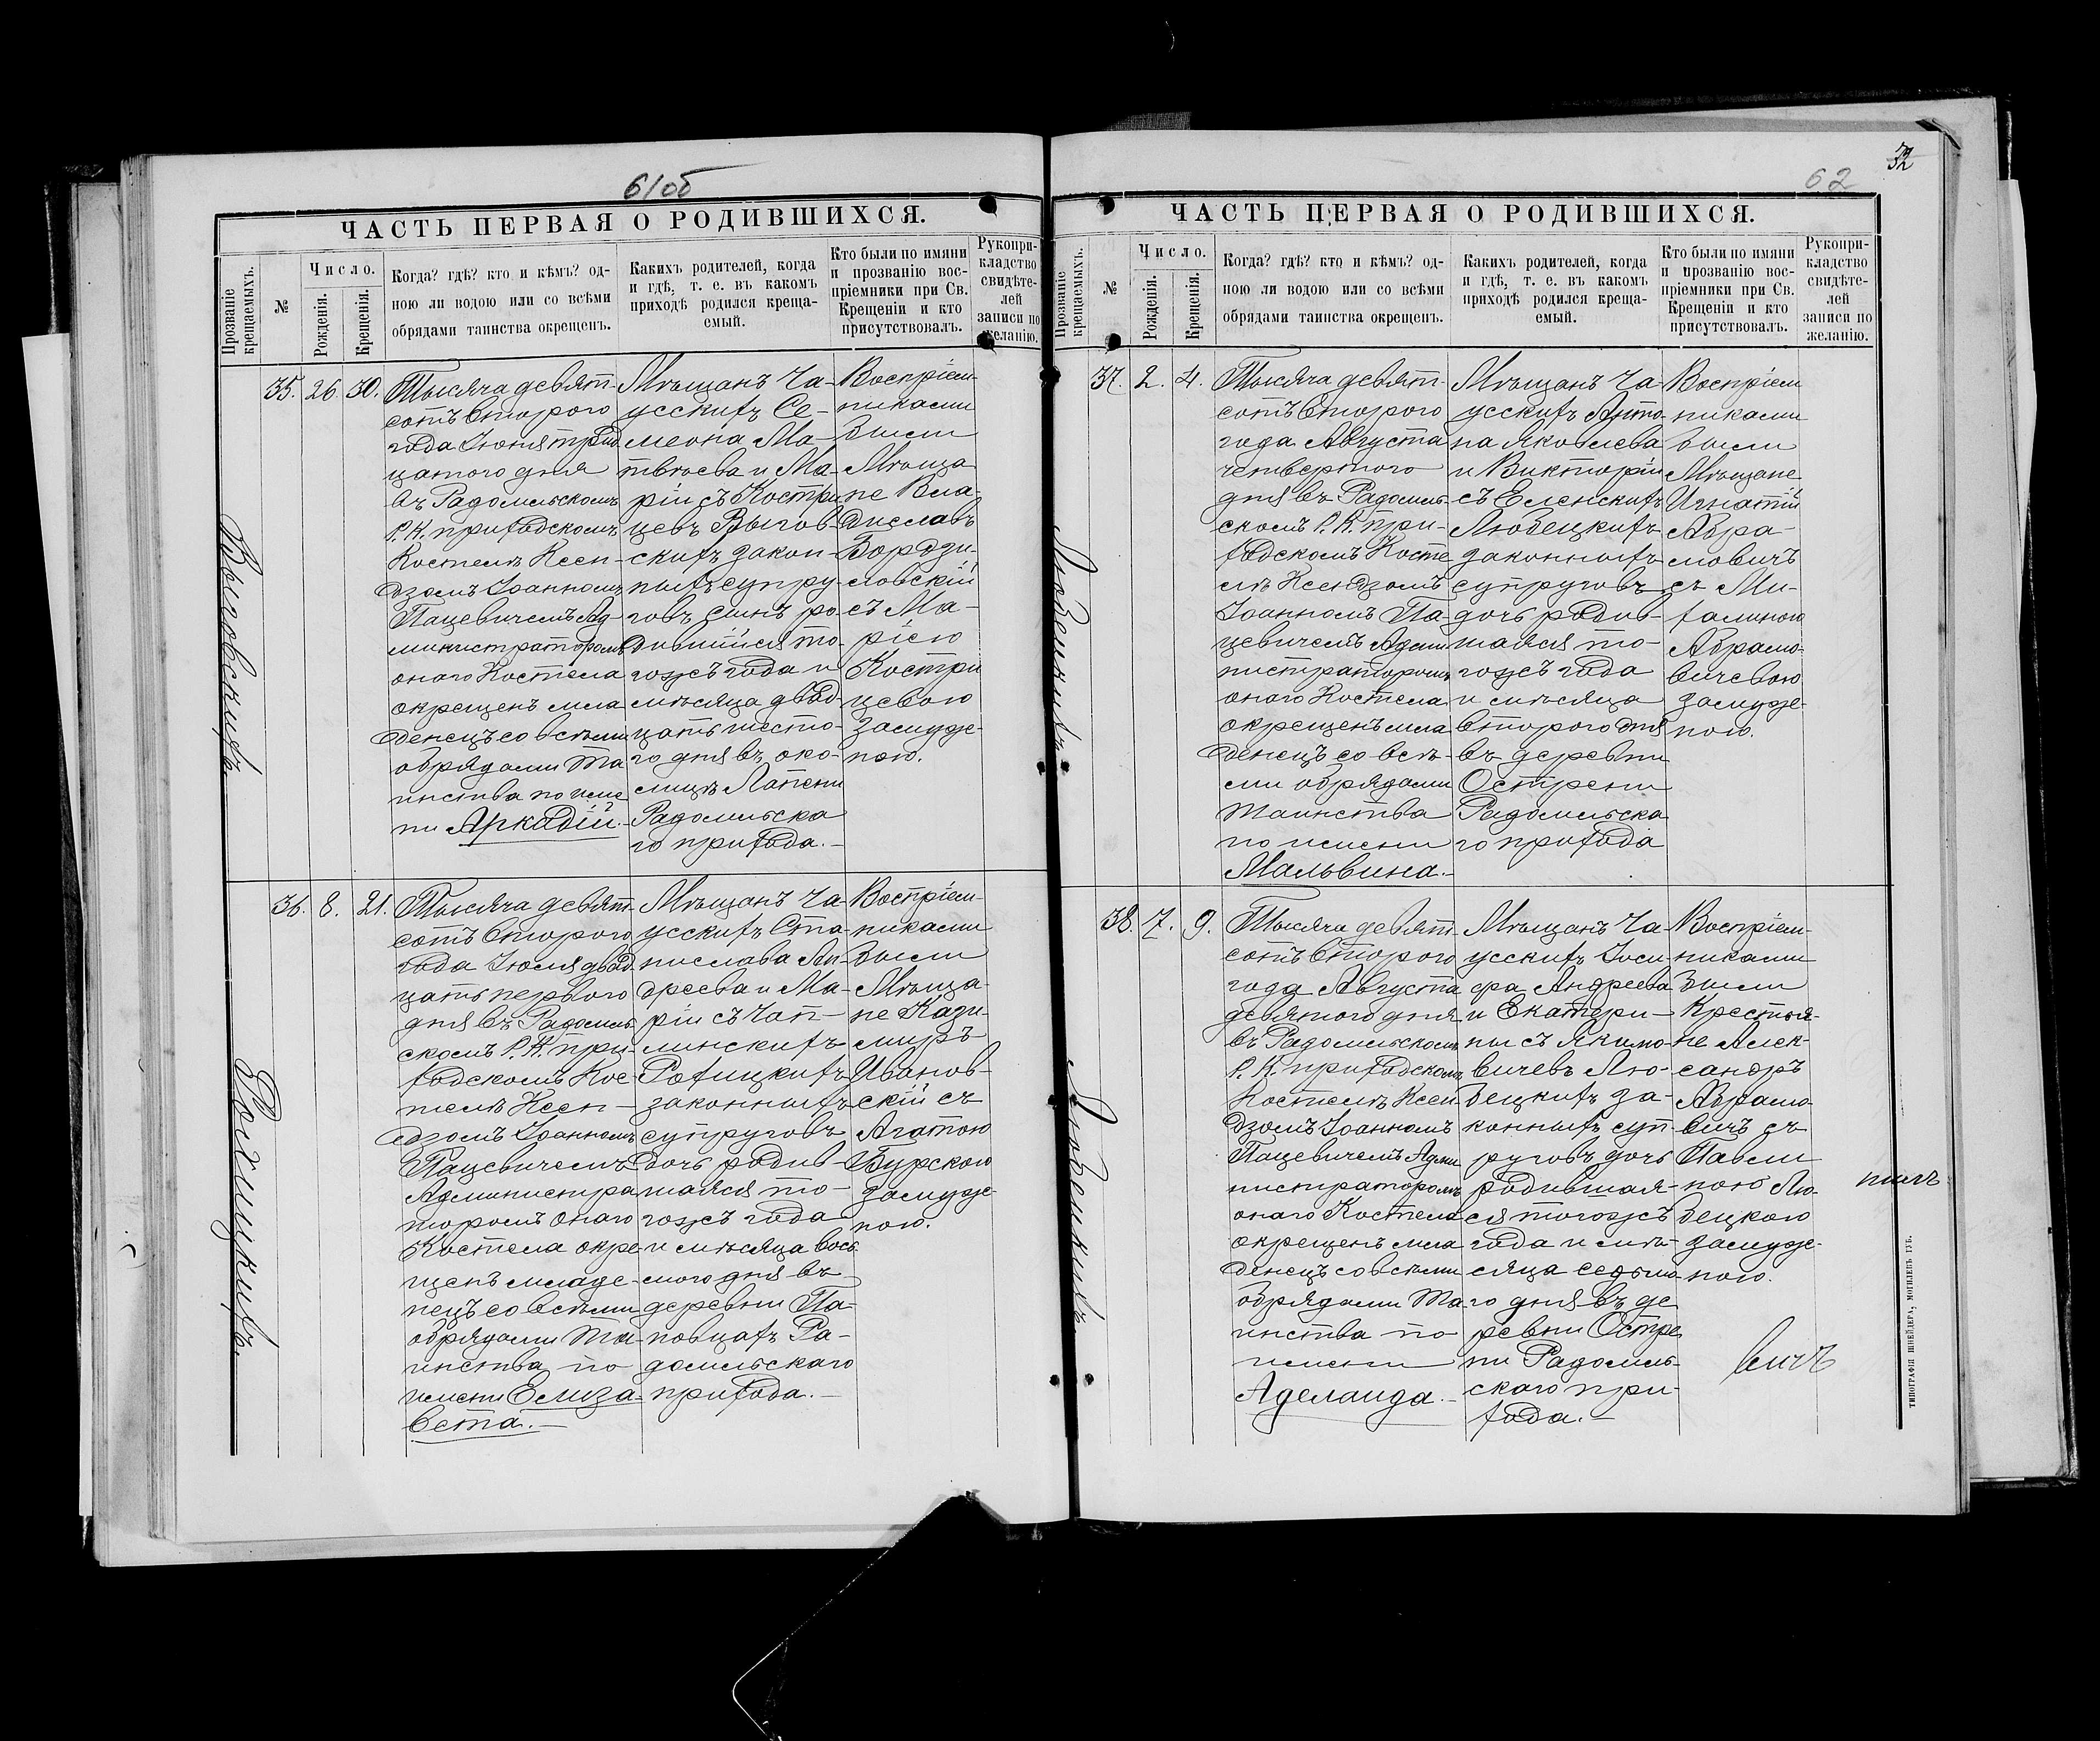 61об
ЧАСТЬ ПЕРВАЯ О РОДИВШИХСЯ.
Прозваніе крещаемыхъ.
№
Число.
Рожденія.
Крещенія.
Когда? гдѣ? кто и кѣмъ? од-
ною ли водою или со всѣми
обрядами таинства окрещенъ.
Какихъ родителей, когда
и гдѣ, т. е. въ какомъ
приходѣ родился креща-
емый.
Кто были по имяни
и прозванію вос-
пріемники при Св.
Крещеніи и кто
присутствовалъ.
Рукопри-
кладство
свидѣте-
лей
записи по
желанію.
Выговскихъ
35. 26. 30.
Тысяча девят-
сотъ второго
года Іюня трид
цатого дня
въ Радомльскомъ
Р. К. приходскомъ
Костелѣ Ксен-
дзомъ Іоанномъ
Пацевичемъ Ад-
министраторомъ
онаго Костела
окрещенъ мла
денецъ со всѣми
обрядами Та
инства по име
ни Аркадій.-
Мѣщанъ Ча-
усскихъ Се-
меона Ма-
твѣева и Ма-
ріи съ Костри
цевъ Выгов-
скихъ закон-
ныхъ супру-
говъ сынъ ро
дившійся то-
гожъ года и
мѣсяца двад-
цать шесто-
го дня въ око-
лицѣ Лапени
Радомльска
го прихода.-
Воспріем-
никами
были
Мѣща
не Вла-
диславъ
Бордзи-
ловскій
съ Ма-
ріею
Костри
цевою
замуже-
ною.
Рохицкихъ.
36. 8. 21.
Тысяча девят-
сотъ второго
года Іюля двад
цать перваго
дня въ Радомль
скомъ Р. К. при-
ходскомъ Кос-
телѣ Ксен-
дзомъ Іоанномъ
Пацевичемъ
Администра
торомъ онаго
Костела окре-
щенъ младе-
нецъ со всѣми
обрядами Та-
инства по
имени Елиза-
вета.-
Мѣщанъ Ча-
усскихъ Ста-
нислава Ан-
дреева и Ма-
ріи съ Чап-
линскихъ
Рохицкихъ
законныхъ
супруговъ
дочь родив-
шаяся то-
гожъ года
и мѣсяца вось
мого дня въ
деревни Па-
новцахъ Ра-
домльскаго
прихода.-
Воспріем-
никами
были
Мѣща-
не Кази-
миръ
Иванов-
скій съ
Агатою
Бурскою
замуже-
ною.
62
32
ЧАСТЬ ПЕРВАЯ О РОДИВШИХСЯ.
Прозваніе крещаемыхъ.
№
Число.
Рожденія.
Крещенія.
Когда? гдѣ? кто и кѣмъ? од-
ною ли водою или со всѣми
обрядами таинства окрещенъ.
Какихъ родителей, когда
и гдѣ, т. е. въ какомъ
приходѣ родился креща-
емый.
Кто были по имяни
и прозванію вос-
пріемники при Св.
Крещеніи и кто
присутствовалъ.
Рукопри-
кладство
свидѣте-
лей
записи по
желанію.
Любецкихъ
37. 2. 4.
Тысяча девят-
сотъ второго
года Августа
четвертого
дня въ Радомль-
скомъ Р. К. при-
ходскомъ Косте
лѣ Ксендзомъ
Іоанномъ Па-
цевичемъ Адми
нистраторомъ
онаго Костела
окрещенъ мла
денецъ со всѣ-
ми обрядами
Таинства
по имени
Мальвина.-
Мѣщанъ Ча-
усскихъ Анто-
на Яковлева
и Викторіи
съ Еленскихъ
Любецкихъ
законныхъ
супруговъ
дочь родив-
шаяся то-
гожъ года
и мѣсяца
второго дня
въ деревни
Острени
Радомльска
го прихода
Воспріем
никами
были
Мѣщане
Игнатій
Абра-
мовичъ
съ Ми-
халиною
Абрамо-
вичевою
замуже-
ною.
Любецкихъ.
38. 7. 9.
Тысяча девят-
сотъ второго
года Августа
девятого дня
въ Радомльскомъ
Р. К. приходскомъ
Костелѣ Ксен
дзомъ Іоанномъ
Пацевичемъ Адми
нистраторомъ
онаго Костела
окрещенъ мла
денецъ со всѣми
обрядами Та-
инства по
имени
Аделаида.-
Мѣщанъ Ча-
усскихъ Іоси
фа Андреева
и Екатери-
ны съ Якимо-
вичевъ Лю-
бецкихъ за-
конныхъ суп-
руговъ дочь
родившая-
ся тогожъ
года и мѣ-
сяца седьмо
го дня въ де
ревни Остре
ни Радомль-
скаго при-
хода.-
Воспріем-
никами
были
Крестья-
не Алек-
сандръ
Абрамо-
вичъ съ
Павли
ною Лю-
бецкою
замуже-
ною.
вичъ
ТИПОГРАФІЯ ШНЕЙДЕРА, МОГИЛЕВЪ ГУБ.